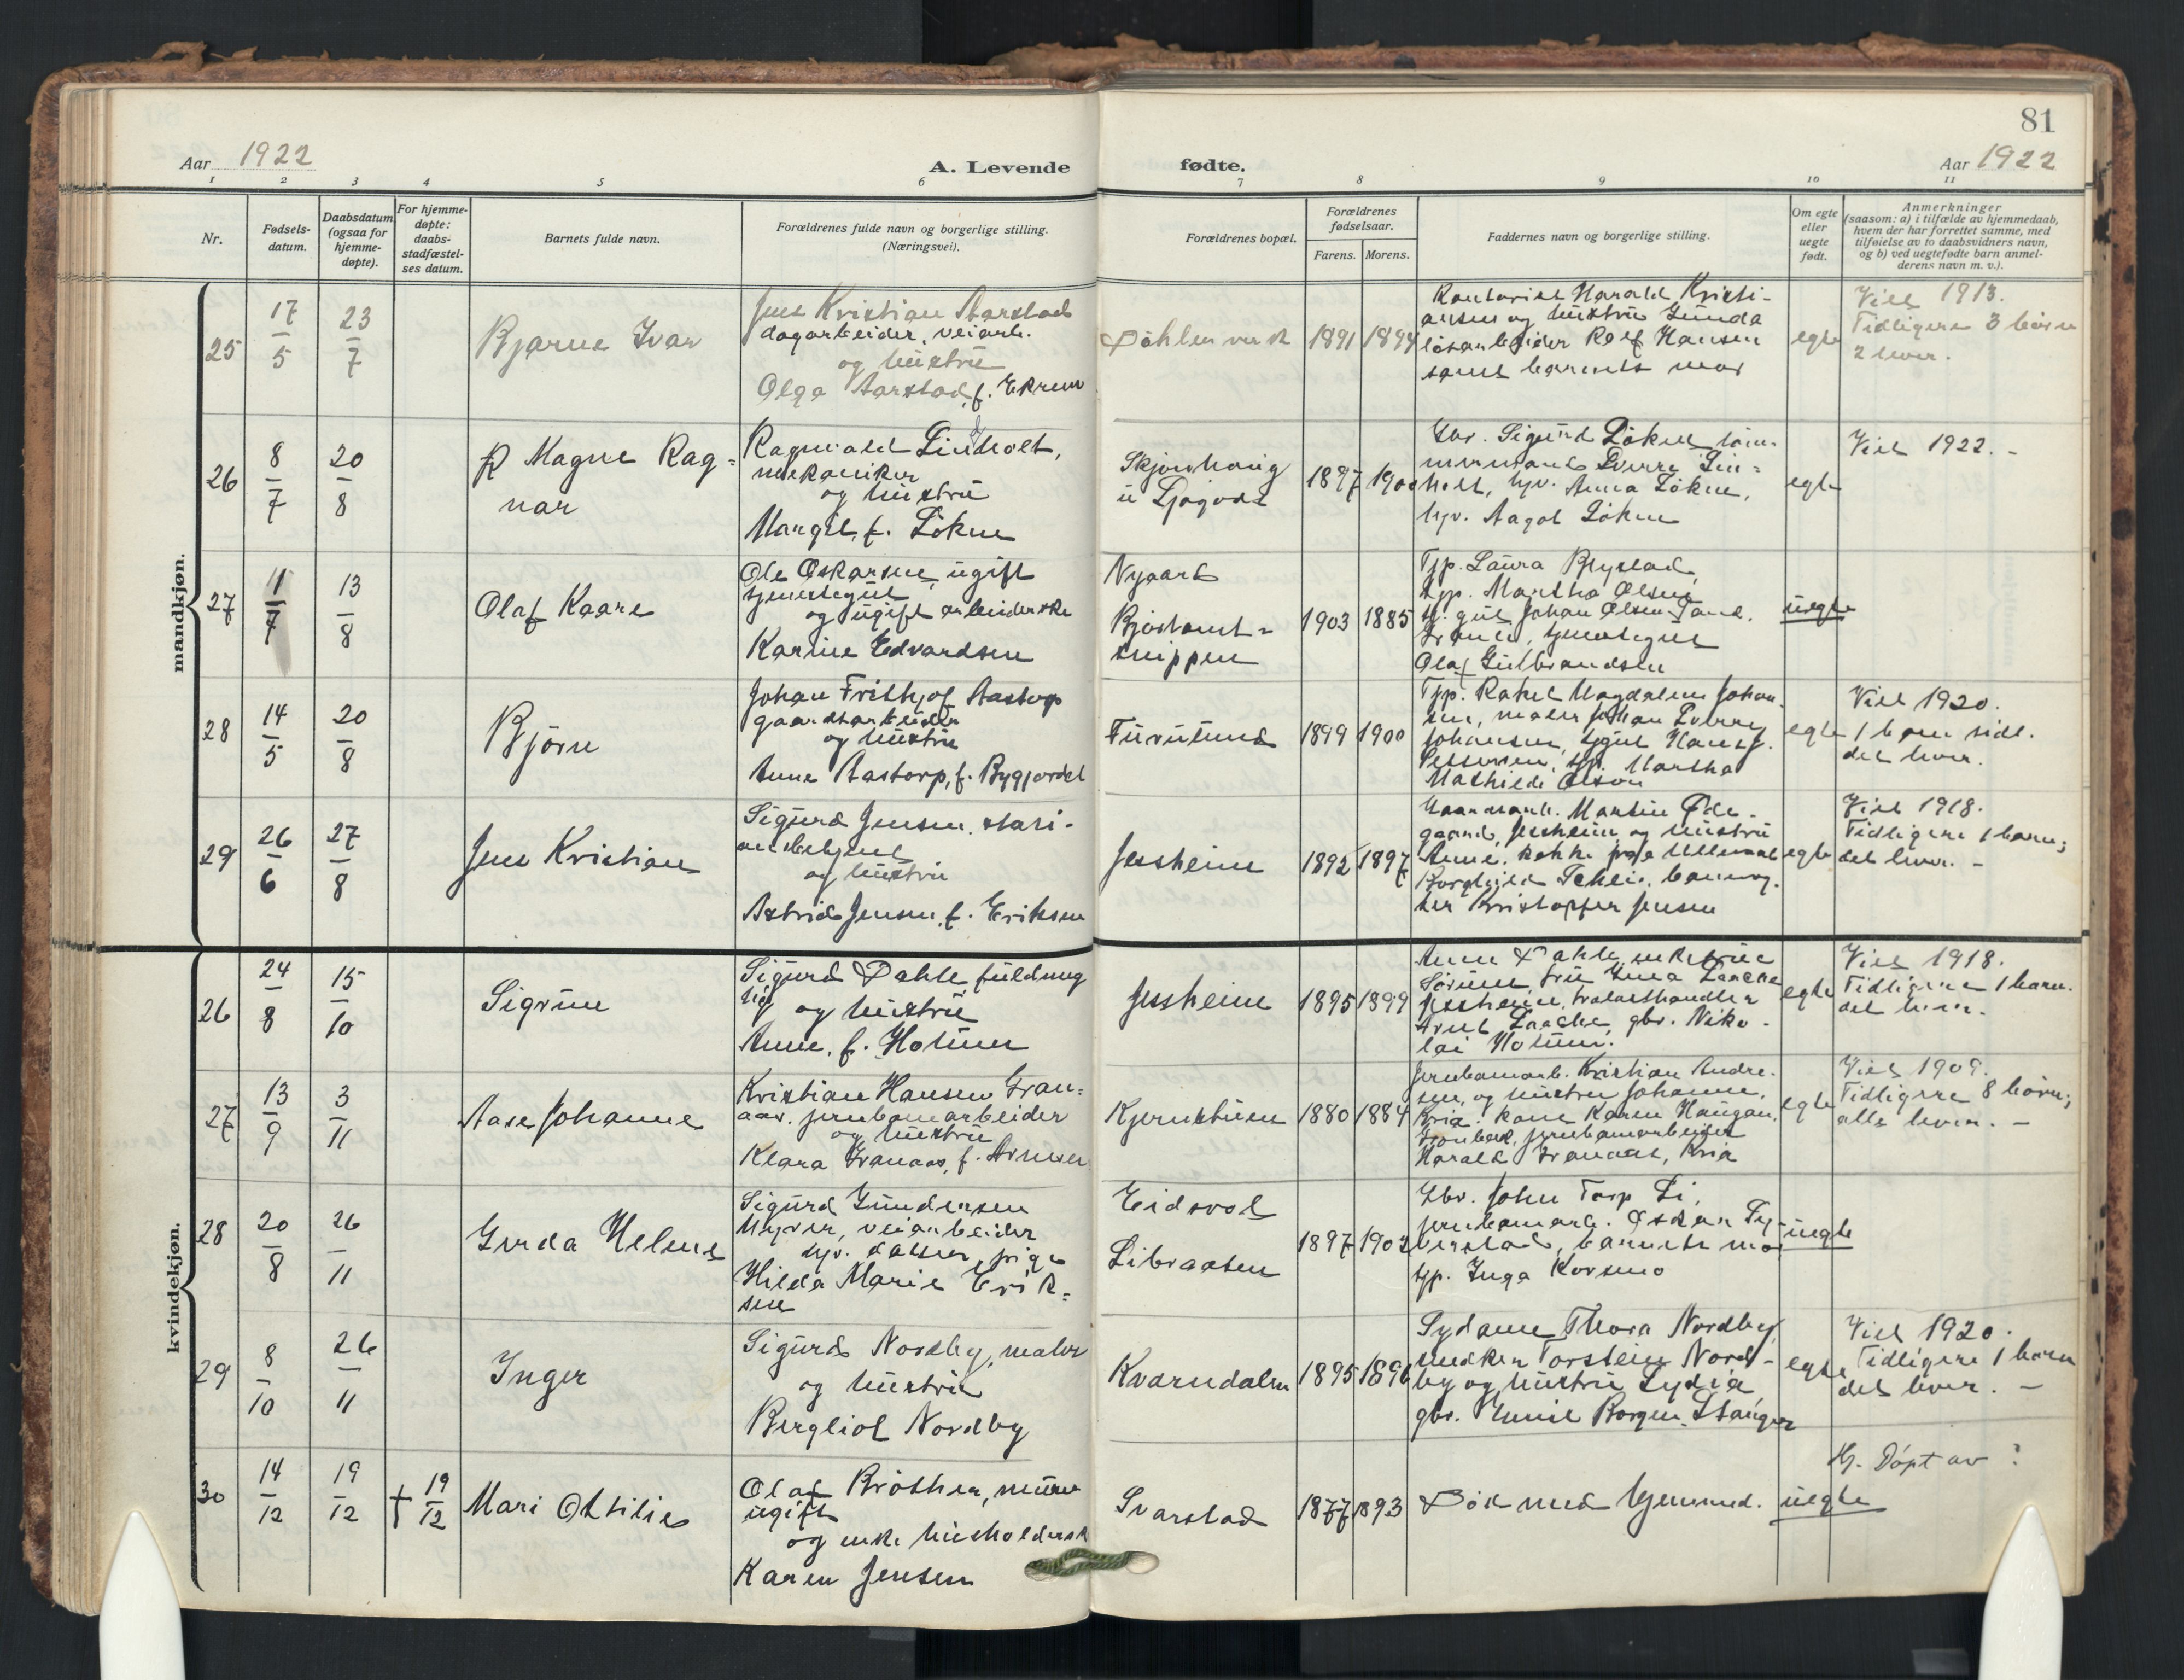 81
Aar 1922
A. Levende
fødte.
Aar 1922
1 2 3 4 5 6 7 8 9 10 11
Nr.
Fødsels-
datum.
Daabsdatum
(ogsaa for
hjemme-
døpte).
For hjemme-
døpte:
daabs-
stadfæstel-
ses datum.
Barnets fulde navn.
Forældrenes fulde navn og borgerlige stilling.
(Næringsvei).
Forældrenes bopæl.
Forældrenes
fødselsaar.
Farens. Morens.
Faddernes navn og borgerlige stilling.
Om egte
eller
uegte
født.
Anmerkninger
(saasom: a) i tilfælde av hjemmedaab,
hvem der har forrettet samme, med
tilføielse av to daabsvidners navn,
og b) ved uegtefødte barn anmel-
derens navn m. v.).
mandkjøn.
25
17/5
23/7
Bjarne Ivar
Jens Kristian Aarstad
dagarbeider, veiarb.
og hustru
Olga Aarstad, f. Ekrem
1891 1894
Harald Kristi-
ansen og hustru Gunda
Rolf Hansen
samt barnets mor
egte
Viet 1913.
Tidligere 3 börn
2 lever.
26
8/7
20/8
Magne Rag=
nar
Ragnvald Lindholt,
mekaniker
og hustru
Margit, f. Lökne
1897 1900
Gbr. Sigurd Löken
Sverre Lin=
holt, hjv. Anna Lökne,
hjv. Aagot Lökne
egte
Viet 1922. -
27
11/7
13/8
Olaf Kaare
Ole Oskarsen, ugift
tjenestegut
og ugift arbeiderske
Karine Edvardsen
Nygard
1903 1885
Tjp. Laura
tjp. Martha Olsen
tj. gut Johan Olsen
tjenestegut
Olaf Gulbrandsen
uegte
28
14/5
20/8
Björn
Johan Frithjof Aastorp
gaardsarbeider
og hustru
Anne Aastorp, f. Bygjordet
Furulund
1899 1900
Tjp. Rakel Magdalene Johan
sen, maler Johan Sverre
Johansen, tjgut Hans J.
Pettersen, tjp. Martha
Mathilde Olson
egte
Viet 1920.
1 barn tidl.
det lever.
29
26/6
27/8
Jens Kristian
Sigurd Jensen, stasi-
onsbetjent
og hustru
Astrid Jensen, f. Eriksen
Jessheim
1892 1897
Martin Öde-
gaard, Jessheim og hustru
Anne.
Borghild
ter Kristoffer Jensen
egte
Viet 1918.
Tidligere 1 barn;
det lever. -
kvindekjøn.
26
24/8
15/10
Sigrun
Sigurd Dahle, fuldmeg
tig og hustru
Anne, f. Holum
Jessheim
1895 1899
Anne Dahle, enkefrue
Sörum, fru Inga Laache
Jessheim, trælasthandler
Arnt Laache, gbr. Niko-
lai Holum.
egte
Viet 1918.
Tidligere 1 barn.
det lever.
27
13/9
3/11
Aase Johanne
Kristian Hansen Gran=
aas, jernbanearbeider
og hustru
Klara Granaas, f. Arnesen
Kjernstuen
1880 1884
Jernbanearb. Kristian Andre.
sen, og hustru Johanne,
Kria. kone Karen Haugan,
jernbanearbeider
Harald Granaas, Kria
egte
Viet 1909.
Tidligere 8 börn;
alle lever. -
28
20/8
26/11
Gerda Helene
Sigurd Gundersen
Myrer, veiarbeider
hjv. datter, pige
Hilda Marie Erik=
sen
Eidsvol
Libraaten
1897 1902
Gbr. John Torp Li,
jernbanearb. Oskar Ty-
verstad, barnets mor
tjp. Inga Korsmo
uegte
29
8/10
26/11
Inger
Sigurd Nordby, maler
og hustru
Bergliot Nordby
Kverndalen
1895 1896
Sydame Thora Nordby,
snekker Torstein Nord-
by og hustru Lydia
gbr. Emil Borgen,
egte
Viet 1920.
Tidligere 1 barn
det lever. -
30
14/12
19/12
† 19/12
Mari Ottilie
Olaf Bråthen, murer
ugift
og enke husholderske
Karen Jensen
Svarstad
1877 1893
Död med hjemmed.
uegte
Hj. Döpt av ?